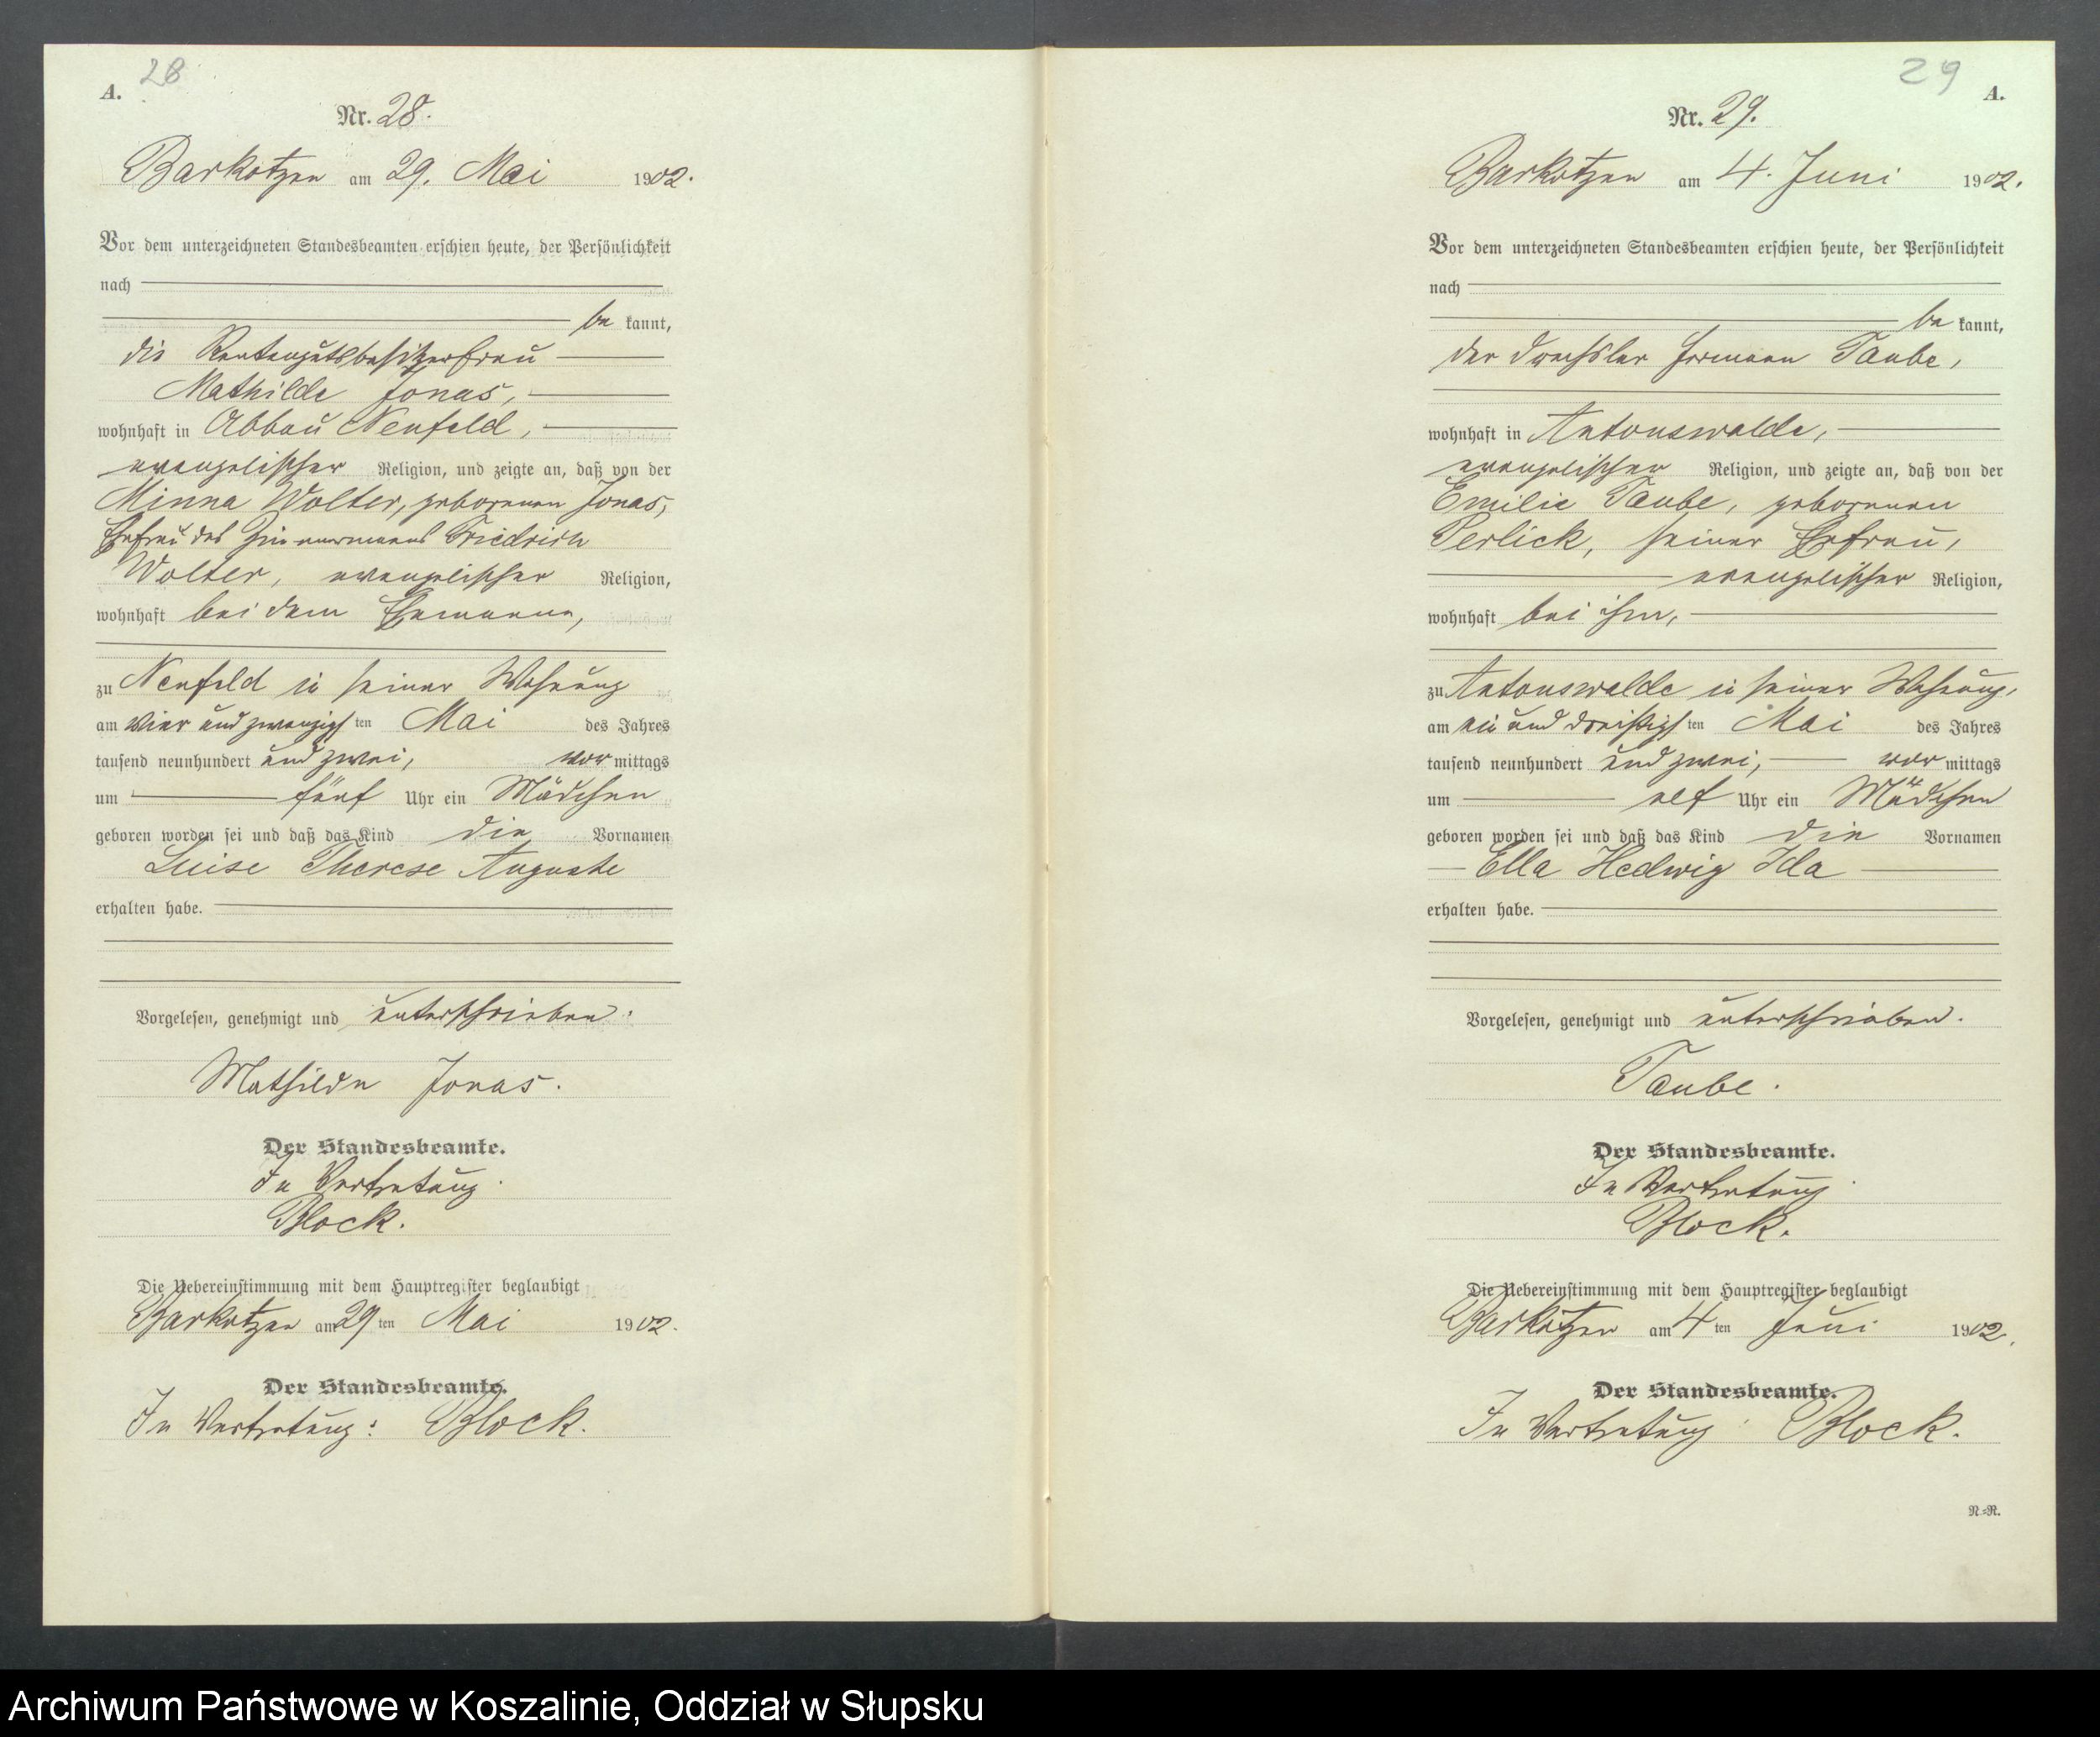 28
A.
Nr. 28.
Barkotzen am 29. Mai 1902.
Vor dem unterzeichneten Standesbeamten erschien heute, der Persönlichkeit
nach
be kannt,
die Rentengutsbesitzerfrau
Mathilde Jonas,
wohnhaft in Abbau Neufeld,
evangelischer Religion, und zeigte an, daß von der
Minna Wolter, geborenen Jonas,
Ehefrau des Zimmermanns Friedrich
Wolter, evangelischer Religion,
wohnhaft bei dem Ehemanne,
zu Neufeld in seiner Wohnung
am vier und zwanzigsten Mai des Jahres
tausend neunhundert und zwei, vor mittags
um fünf Uhr ein Mädchen
geboren worden sei und daß das Kind die Vornamen
Luise Therese Auguste
erhalten habe.
Vorgelesen, genehmigt und unterschrieben.
Mathilde Jonas.
Der Standesbeamte.
In Vertretung.
Block.
Die Uebereinstimmung mit dem Hauptregister beglaubigt
Barkotzen am 29 ten Mai 1902.
Der Standesbeamte.
In Vertretung: Block.
29
A.
Nr. 29.
Barkotzen am 4. Juni 1902.
Vor dem unterzeichneten Standesbeamten erschien heute, der Persönlichkeit
nach
be kannt,
der Drechsler Hermann Taube,
wohnhaft in Antonswalde,
evangelischer Religion, und zeigte an, daß von der
Emilie Taube, geborenen
Perlick, seiner Ehefrau,
evangelischer Religion,
wohnhaft bei ihm,
zu Antonswalde in seiner Wohnung,
am ein und dreißigsten Mai des Jahres
tausend neunhundert und zwei, vor mittags
um elf Uhr ein Mädchen
geboren worden sei und daß das Kind die Vornamen
Ella Hedwig Ida
erhalten habe.
Vorgelesen, genehmigt und unterschrieben.
Taube.
Der Standesbeamte.
In Vertretung
Block.
Die Uebereinstimmung mit dem Hauptregister beglaubigt
Barkotzen am 4 ten Juni 1902.
Der Standesbeamte.
In Vertretung Block.
N.=R.
Archiwum Państwowe w Koszalinie, Oddział w Słupsku